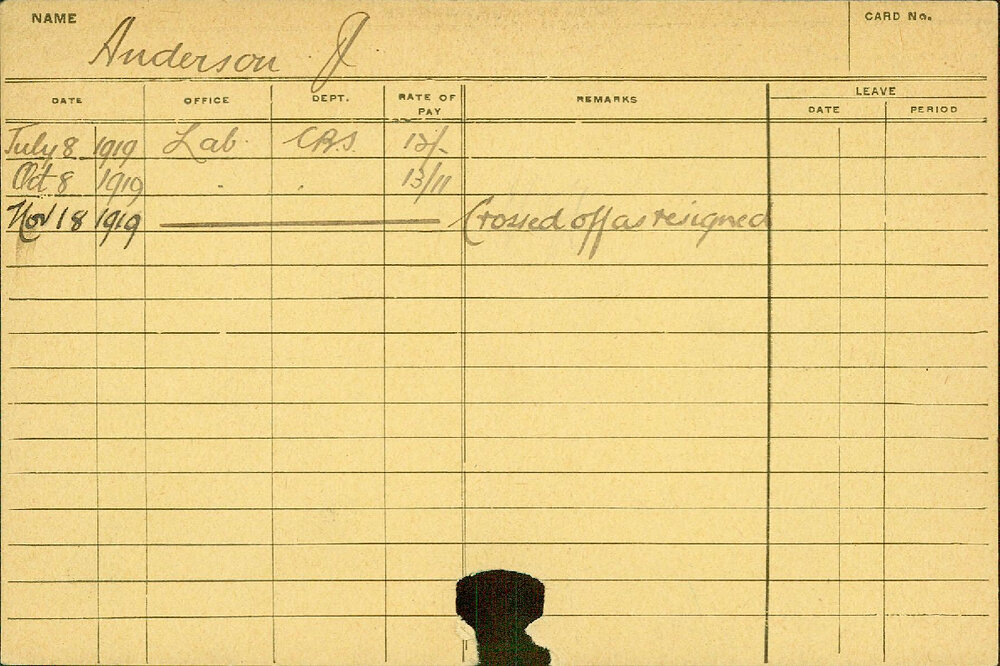 NAME
CARD No.
Anderson J
DATE OFFICE DEPT. RATE OF PAY REMARKS LEAVE
DATE PERIOD
July 8 1919 Lab. 12/-
Oct 8 1919 . . 13/11
Nov 18 1919 Crossed off as resigned